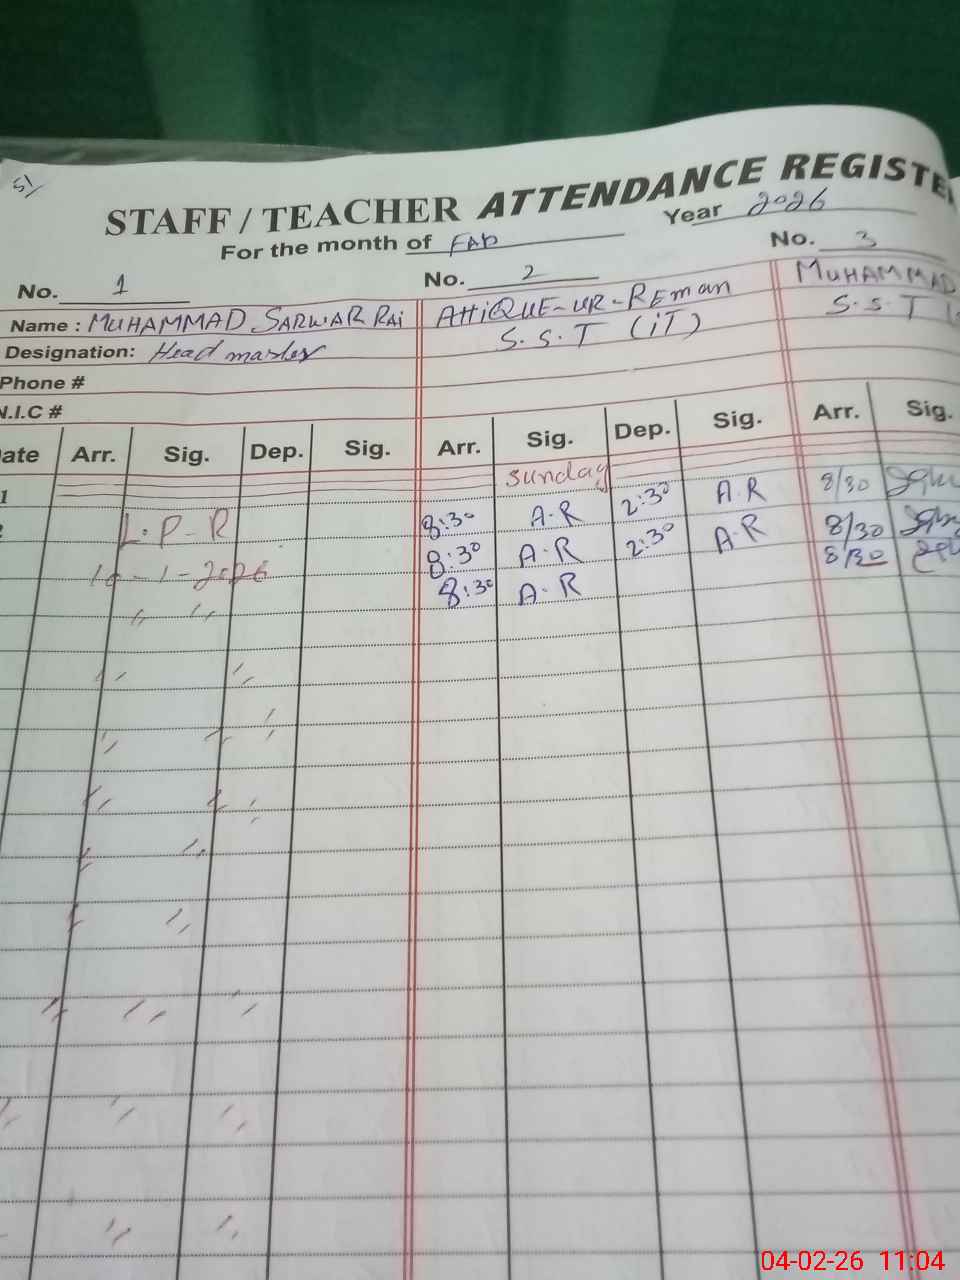 51
STAFF / TEACHER ATTENDANCE REGISTE
For the month of FAb Year 2026
No. 1 No. 2 No. 3
Name : MUHAMMAD SARWAR RAi ATTiQUE-UR-REman MUHAMMAD
Designation: Head master S.S.T (iT) S.S.T
Phone #
N.I.C #
ate Arr. Sig. Dep. Sig. Arr. Sig. Dep. Sig. Arr. Sig.
1 Sunday
2 L.P-R 8:30 A.R 2:30 A.R 8/30
1-2026 8:30 A.R 2:30 A.R 8/30
〃 〃 8:30 A.R 8/30
04-02-26 11:04